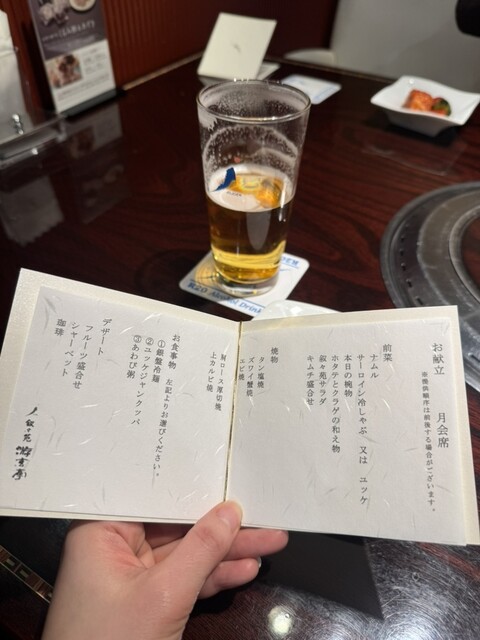 お献立 月会席
※提供順序は前後する場合がございます。
前菜
ナムル
サーロイン冷しゃぶ 又は ユッケ
本日の椀物
ホタテとクラゲの和え物
叙々苑サラダ
キムチ盛合せ
焼物
タン塩焼
ズワイ蟹焼
エビ焼
肩ロース厚切焼
上カルビ焼
お食事物 左記よりお選びください。
①銀盤冷麺
②ユッケジャンクッパ
③あわび粥
デザート
フルーツ盛合せ
シャーベット
珈琲
叙々苑 游玄亭
R20 Alcohol Drink